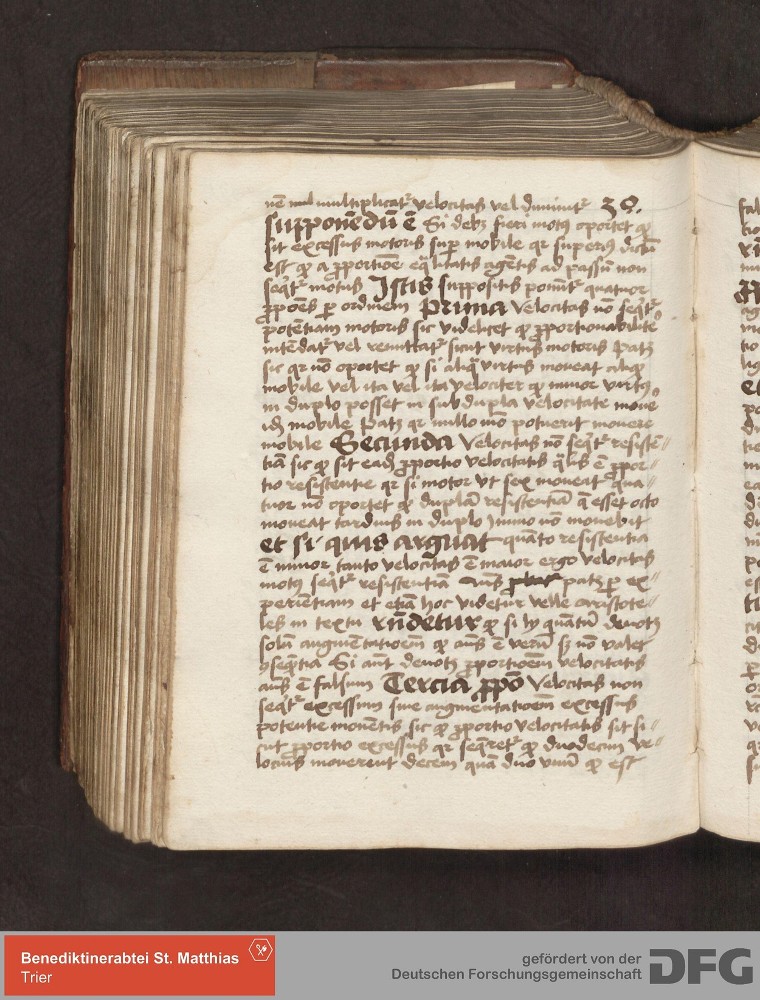 nē multiplicatr̄ velocitas vel diminuit̄ 3Q.
Supponēdū ē Si debꝫ fieri motꝰ oportet ꝙ
sit excessus motoris sup̄ mobile qr superiꝰ dictū
est ꝙ a ꝓportiōe eq̄litatis agētis ad passū non
seqt̄r motus Istis suppositis ponūt̄ quatuor
ꝓpōes ꝑ ordinem Prima Velocitas nō seqt̄r
potētiam motoris sic videlicet ꝙ ꝓportionabilit̄
intēdat̄ vel remittat̄ sicut virtus motoris Patꝫ
sic qr nō oportet ꝙ si aliq̄ virtus moveat aliqḋ
mobile vel ita vel ita velociter ꝙ minor virtꝰ
in duplo posset in subdupla velocitate move
idē mobile Patꝫ qr nullo mō potuerit movere
mobile Secunda Velocitas nō seqt̄r resistē-
tiā sic ꝙ sit eadē ꝓportio velocitatis q̄lis ē ꝓpor-
tio resistentie qr si motor vt sex moveat qua-
tuor nō oportet ꝙ duplā resistentiā q̄ esset octo
moveat tardius in duplo Immo nō movebit
et si quis arguat quāto resistentia
ē minor tanto velocitas ē maior ergo velocitas
motꝰ seqt̄r resistentiam Aūs patꝫ ꝑ ex-
perientiam et etiā hoc videtur velle aristote-
les in textu Rn̄detur ꝙ si ly quātū denotꝫ
solū augmētatioēm ꝙ aūs ē verū sꝫ nō valet
ꝯseq̄tia Si aūt denotꝫ ꝓportioēm velocitatis
aūs ē falsum Tercia ꝓpō Velocitas non
seqt̄r excessum sive augmentatioēm excessus
potentie movētis sic ꝙ ꝓportio velocitatis sit si-
cut ꝓportio excessus qr seq̄ret̄ ꝙ duodecim ve-
locius moverent decem quā duo vnū ꝙ est
Benediktinerabtei St. Matthias
Trier
gefördert von der
Deutschen Forschungsgemeinschaft DFG